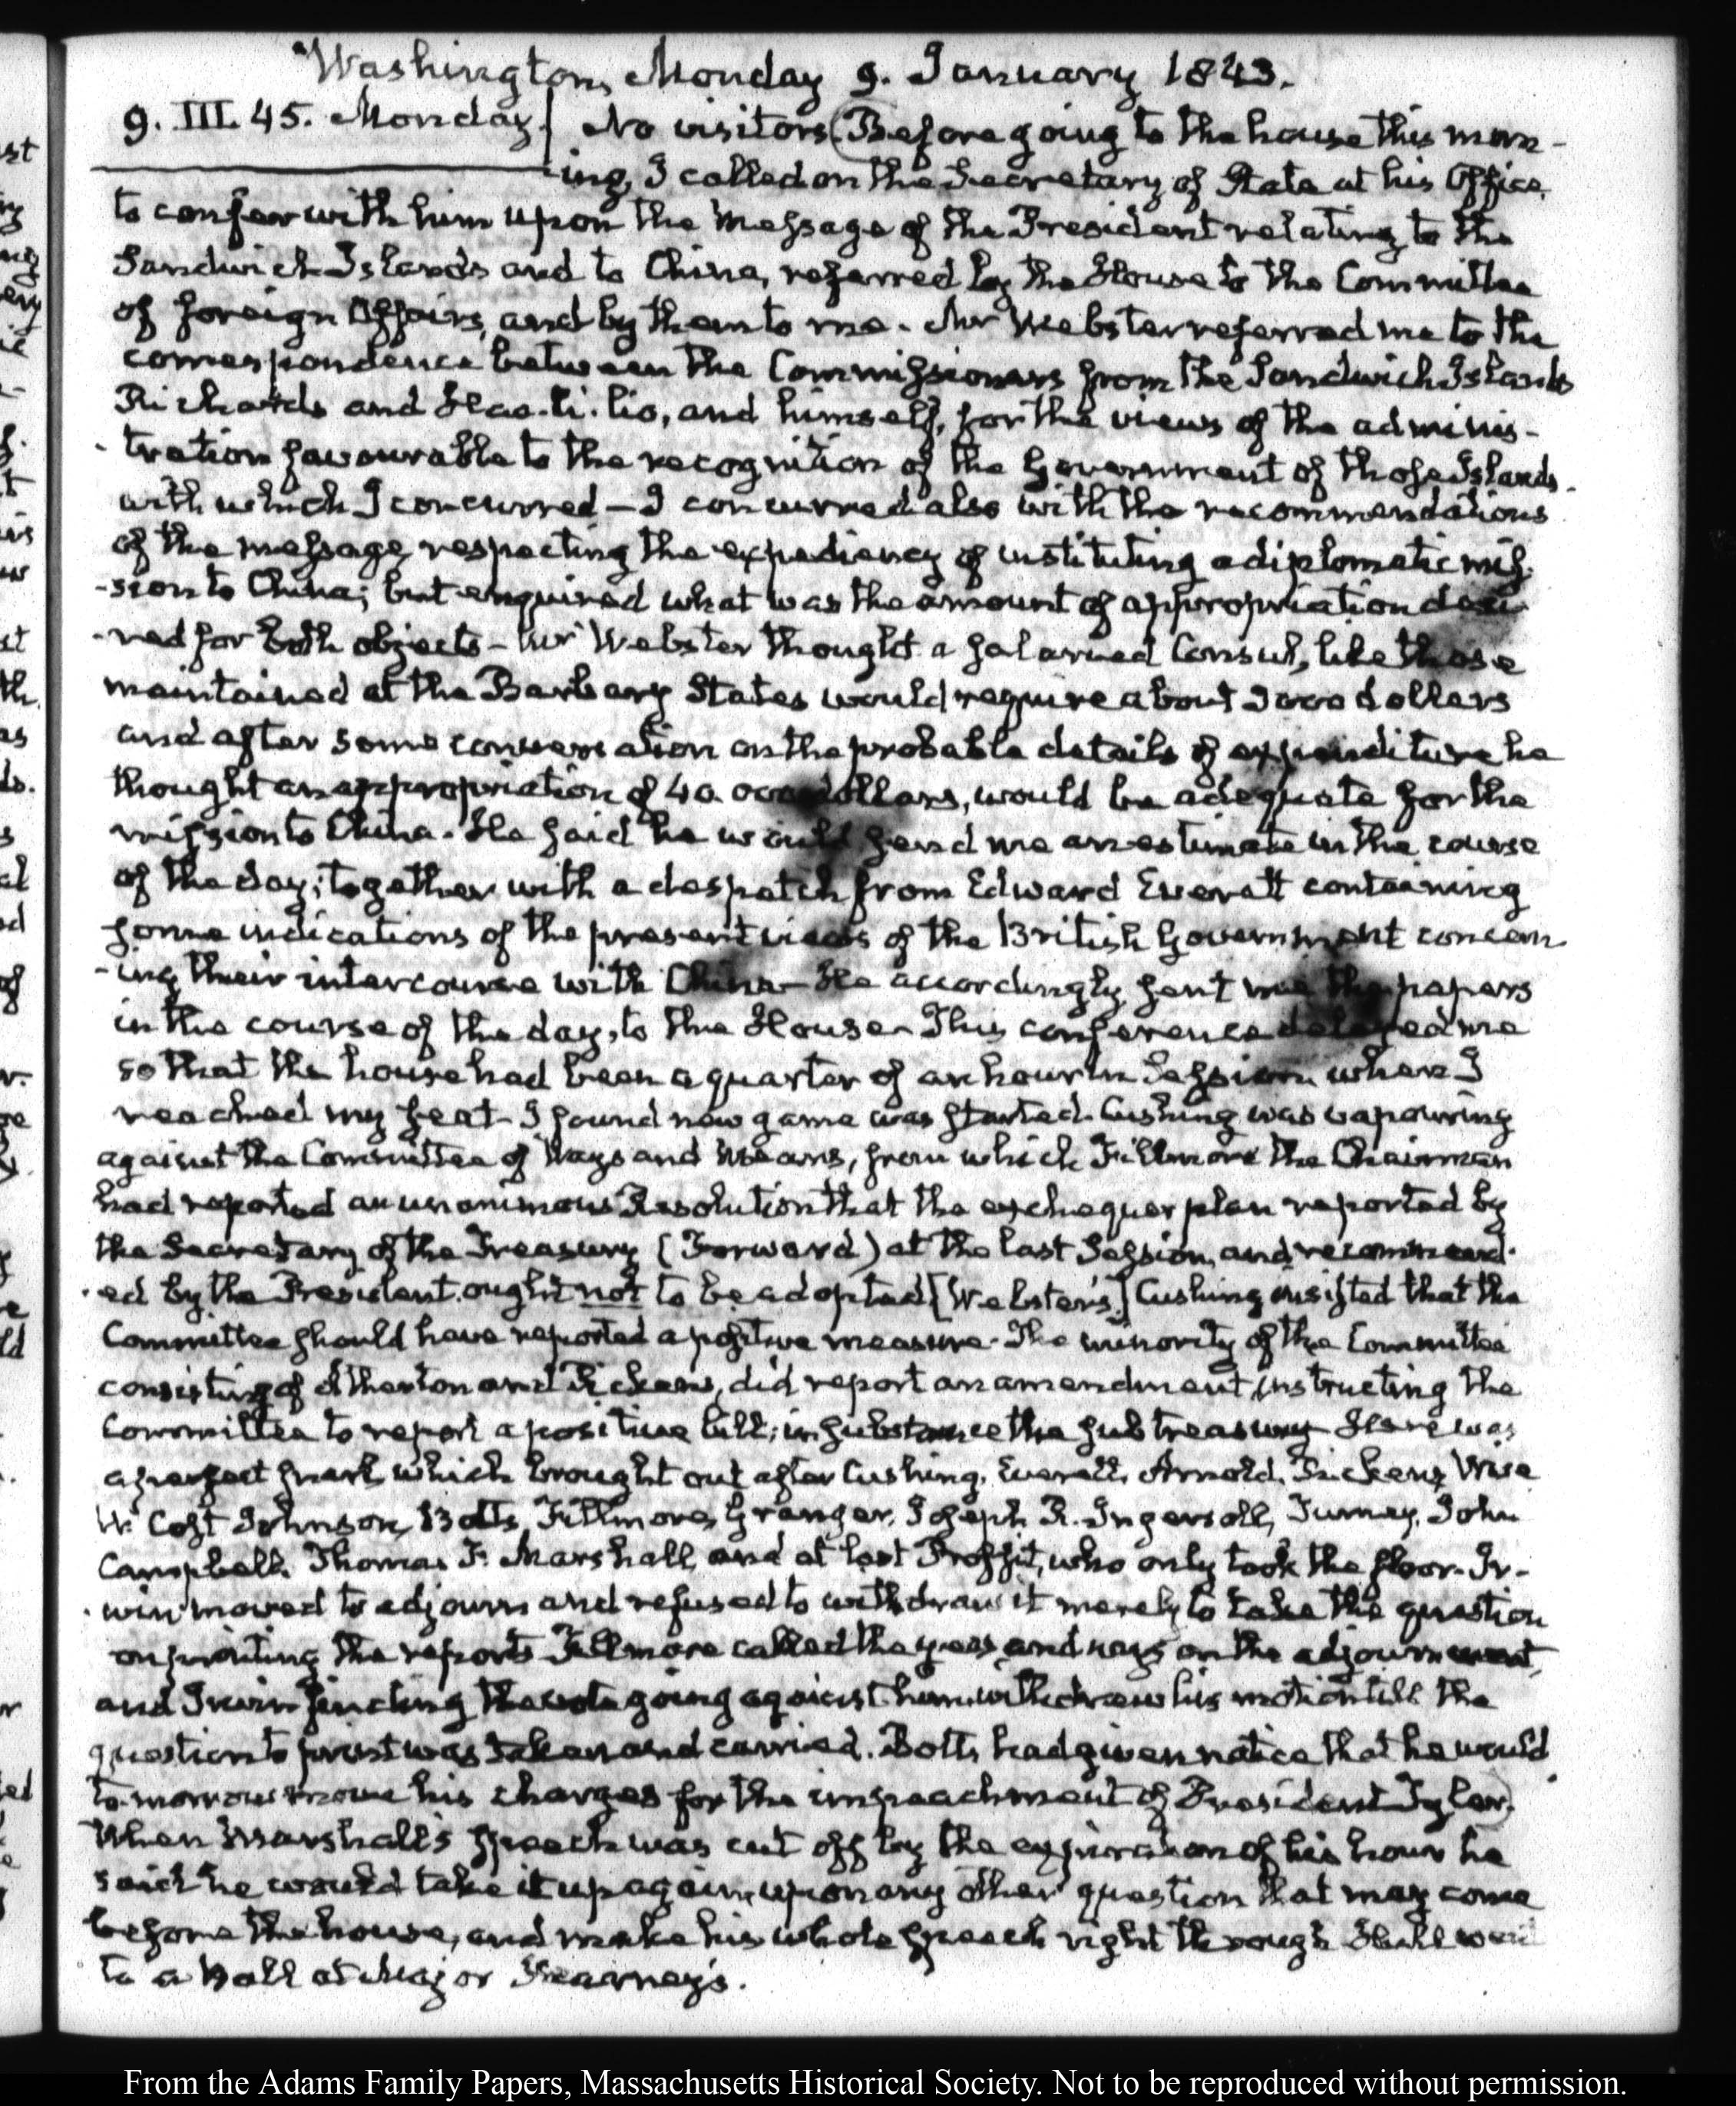 Washington, Monday 9. January 1843.
9. III. 45. Monday. No visitors (Before going to the house this morn-
-ing, I called on the Secretary of State at his Office,
to confer with him upon the Message of the President relating to the
Sandwich Islands and to China, referred by the House to the Committee
of foreign Affairs, and by them to me. Mr Webster referred me to the
correspondence between the Commissioners from the Sandwich Islands
Richards and Haa.li.lio, and himself, for the views of the adminis-
-tration favourable to the recognition of the Government of those Islands.
with which I concurred — I concurred also with the recommendations
of the message, respecting the expediency of instituting a diplomatic mis-
-sion to China; but enquired what was the amount of appropriation desi-
-red for both objects — Mr Webster thought a salaried Consul, like those
maintained at the Barbary States would require about 3000 dollars
and after some conversation on the probable details of expenditure he
thought an appropriation of 40.000 dollars, would be adequate for the
mission to China. He said he would send me an estimate in the course
of the day; together with a despatch from Edward Everett containing
some indications of the present views of the British Government concern-
-ing their intercourse with China — He accordingly sent me the papers
in the course of the day, to the House. This conference delayed me
so that the house had been a quarter of an hour in Session when I
reached my seat. I found new game was started. Cushing was vapouring
against the Committee of Ways and Means, from which Fillmore the Chairman
had reported an unanimous Resolution that the exchequer plan reported by
the Secretary of the Treasury (Forward) at the last Session, and recommend-
-ed by the President. ought not to be adopted [Webster's.] Cushing insisted that the
Committee should have reported a positive measure. The minority of the Committee
consisting of Atherton and Pickens, did report an amendment, instructing the
Committee to report a positive bill; in substance the sub treasury. Here was
a perfect snarl, which brought out after Cushing, Everett, Arnold, Pickens, Wise
W. Cost Johnson, Botts, Fillmore, Granger, Joseph R. Ingersoll, Turney, John
Campbell, Thomas F. Marshall, and at last Proffit, who only took the floor. Ir-
-win moved to adjourn and refused to withdraw it merely to take the question
on printing the reports. Fillmore called the yeas and nays on the adjournment,
and Irwin finding the vote going against him withdrew his motion till the
question to print was taken and carried. Botts had given notice that he would
to-morrow move his charges for the impeachment of President Tyler)
When Marshall's speech was cut off by the expiration of his hour he
said he would take it up again, upon any other question that may come
before the house, and make his whole speech right through
to a Ball at Major Kearney's.
From the Adams Family Papers, Massachusetts Historical Society. Not to be reproduced without permission.